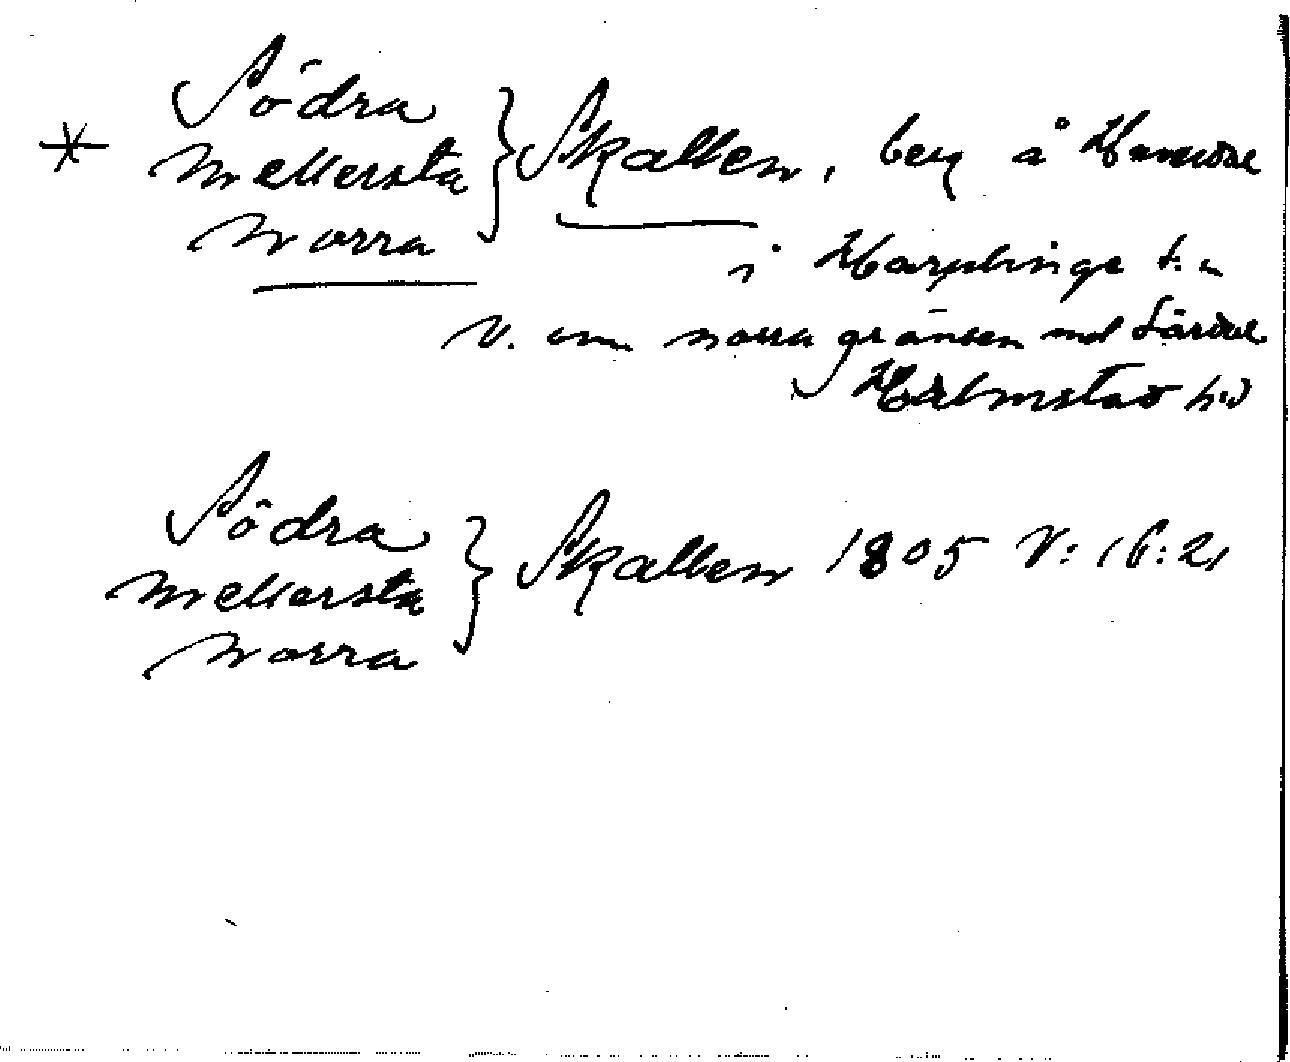 * Södra
Mellersta } Skallen, berg å
Norra
i Harplinge s:n
V. om norra gränsen mot
Halmstad h:d
Södra
Mellersta } Skallen 1805 V: 16:21
Norra